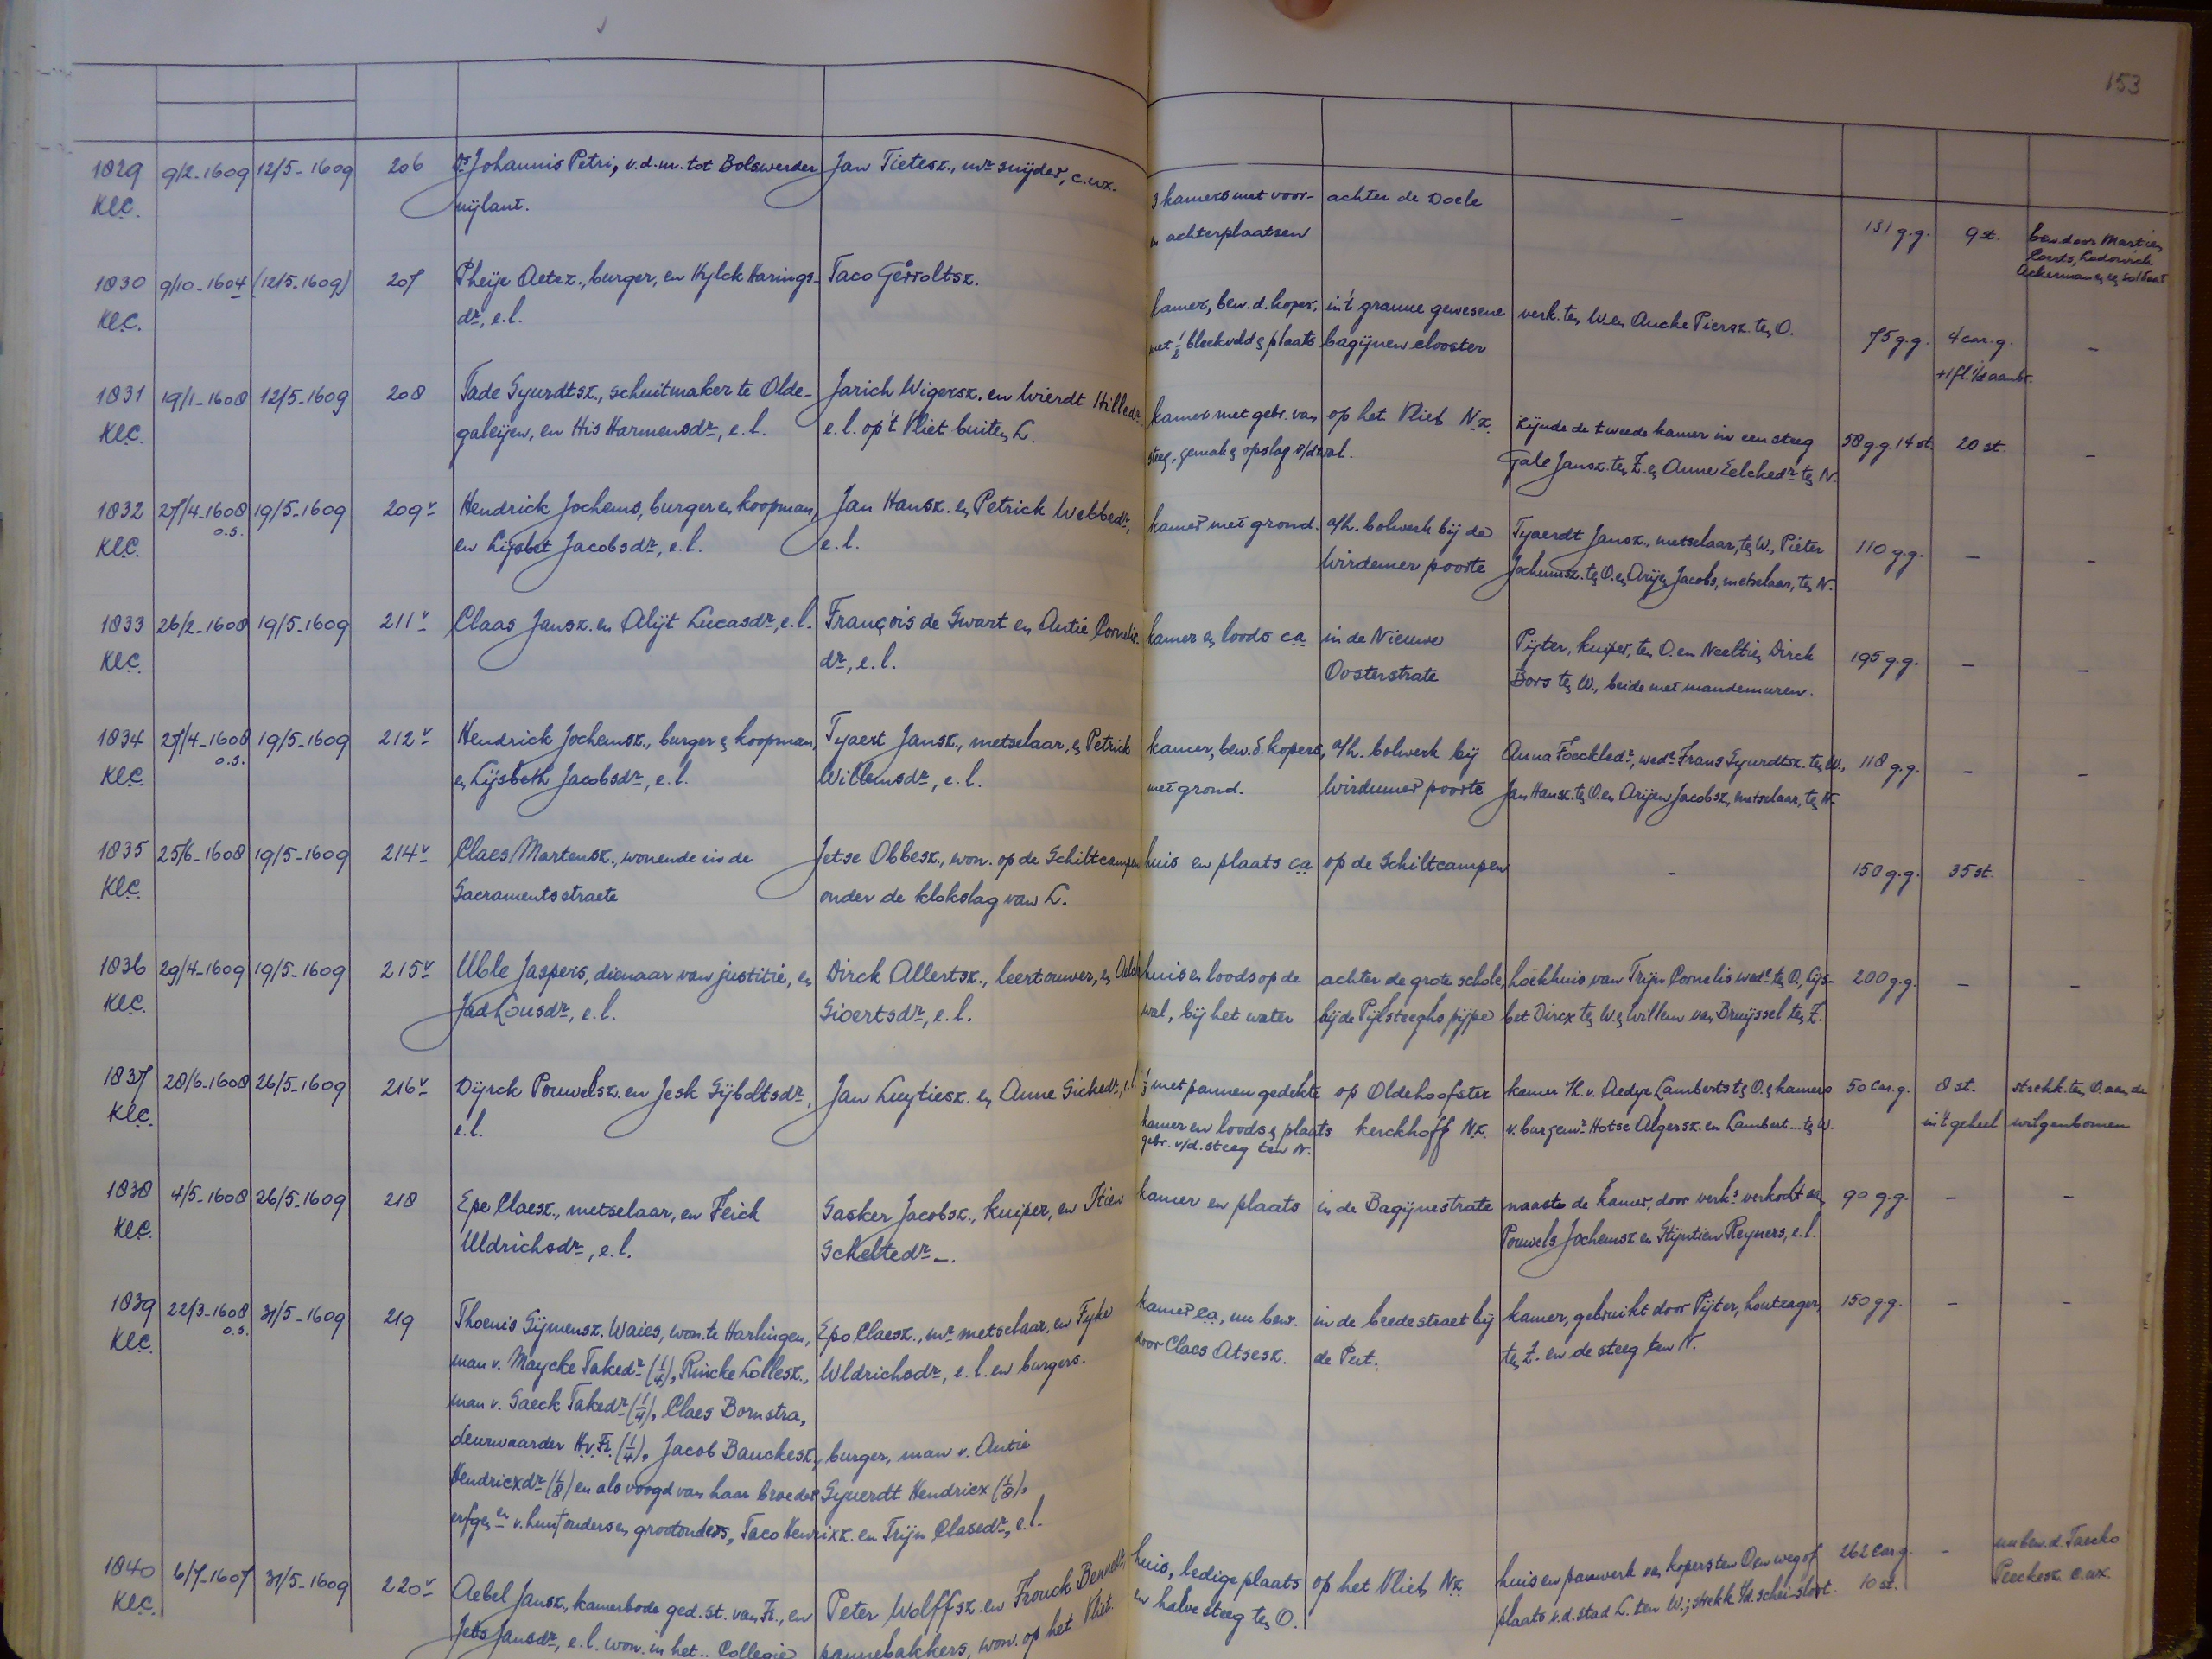 153
1829 9/2-1609 12/5-1609 206 Ds Johannis Petri, v.d.m. tot Bolswerder Jan Tietesz., mr snijder, c.ux. 3 kamers met voor- achter de Doele - 131 g.g. 9 st. bew door Martien
Kl.C. nijlant. en achterplaatsen Ackerman en soldaat
1830 9/10-1604 (12/5-1609) 207 Pheije Aetez., burger, en Hylck Harings- Taco Gerroltsz. kamer, bew. d. koper, in 't grauwe gewesene verk. ten W. en Aucke Piersz. ten O. 75 g.g. 4 car.g. -
Kl.C. dr, e.l. met ½ bleekveld & plaats bagijnen clooster
1831 19/1-1608 12/5-1609 208 Tade Syurdtsz., schuitmaker te Olde- Jarich Wigersz. en Wierdt Hilledr, kamer met gebr. van op het Vliet N.z. zijnde de tweede kamer in een steeg 58 g.g. 14 st. 20 st. -
Kl.C. galeijen, en His Harmensdr, e.l. e.l. op 't Vliet buiten L. steeg, gemak & opslag o/d wal. Gale Jansz. ten Z. en Anne Eelckedr ten N.
1832 27/4-1608 19/5-1609 209v Hendrick Jochems, burger en koopman, Jan Hansz. en Petrick Webbedr, kamer met grond. a/h. bolwerk bij de Tyaerdt Jansz., metselaar, ten W., Pieter 110 g.g. - -
Kl.C. o.s. en Lijsbet Jacobsdr, e.l. e.l. Wirdemer poorte Jochemsz. ten O. en Arijen Jacobs, metselaar, ten N.
1833 26/2-1608 19/5-1609 211v Claas Jansz. en Alijt Lucasdr, e.l. François de Swart en Antie Cornelis- kamer en loods c.a. in de Nieuwe Pijter, kuiper, ten O. en Neeltien Dirck 195 g.g. - -
Kl.C. dr, e.l. Oosterstrate Bors ten W., beide met mandemuren.
1834 27/4-1608 19/5-1609 212v Hendrick Jochemsz., burger & koopman, Tyaert Jansz., metselaar, en Petrick kamer, bew. d. kopers, a/h. bolwerk bij Anna Foeckledr, wede Frans Syurdtsz. ten W., 118 g.g. - -
Kl.C. o.s. en Lijsbeth Jacobsdr, e.l. Willemsdr, e.l. met grond. Wirdumer poorte Jan Hansz. ten O. en Arijen Jacobsz, metselaar, ten N.
1835 25/6-1608 19/5-1609 214v Claes Martensz., wonende in de Jetse Obbesz., won. op de Schiltcampen huis en plaats c.a. op de Schiltcampen - 150 g.g. 35 st. -
Kl.C. Sacramentsstraete onder de klokslag van L.
1836 29/4-1609 19/5-1609 215v Uble Jaspers, dienaar van justitie, en Dirck Allertsz., leertouwer, en huis en loods op de achter de grote schole, hoekhuis van Trijn Cornelis wede ten O., Lijs- 200 g.g. - -
Kl.C. Lousdr, e.l. Sioertsdr, e.l. wal, bij het water bij de Pijlsteeghs pijpe bet Dircx ten W. & Willem van Bruijssel ten Z.
1837 28/6-1608 26/5-1609 216v Dijrck Pouwelsz. en Jesk Sijbdltsdr, Jan Luytiesz. en Anne Sickedr, e.l. ½ met pannen gedekte op Oldehoofster kamer H. v. Aedye Lamberts ten O. & kamers 50 car.g. 8 st. strekk. ten O. aan de
Kl.C. e.l. kamer en loods & plaats kerckhoff N.z. v. burgemr Hotse Algersz. en Lambert... ten W. in 't geheel wilgenbomen
gebr. v/d. steeg ten N.
1838 4/5-1608 26/5-1609 218 Epe Claesz., metselaar, en Feick Sasker Jacobsz., kuiper, en Itien kamer en plaats in de Bagijnestrate naaste de kamer, door verk.s verkocht aan 90 g.g. - -
Kl.C. Uldrichsdr, e.l. Scheltedr -. Pouwels Jochemsz. en Stijntien Reyners, e.l.
1839 22/3-1608 31/5-1609 219 Thoenis Sijmensz. Waies, won. te Harlingen, Epo Claesz., mr metselaar, en Fyke kamer c.a., nu bew. in de breedestraet bij kamer, gebruikt door Pijter, houtzager, 150 g.g. - -
Kl.C. o.s. man v. Maycke Takedr (¼), Rincke Lollesz., Uldrichsdr, e.l. en burgers. door Claes Atsesz. de Put. ten Z. en de steeg ten N.
man v. Saeck Takedr (¼), Claes Bornstra,
deurwaarder H.v.Fr. (¼), Jacob Bauckesz, burger, man v. Antie
Hendricxdr (⅛) en als voogd van haar broeder Syuerdt Hendricx (⅛),
erfgen.en v. hun ouders en grootouders, Taco Henrixz. en Trijn Clasedr, e.l.
1840 6/7-1607 31/5-1609 220v Aebel Jansz., kamerbode ged. st. van Fr., en Peter Wolffsz. en Frouck Bennedr, huis, ledige plaats op het Vliet N.z. huis en panwerk van kopers ten O. en weg of 262 car.g. - nu bew. d. Taecko
Kl.C. Jets Jansdr, e.l. won. in het .. Collegie pannebakkers, won. op het Vliet. en halve steeg ten O. plaats v.d. stad L. ten W.; strekk. t/d. schei-sloot. 10 st. Peeckesz c.ux.